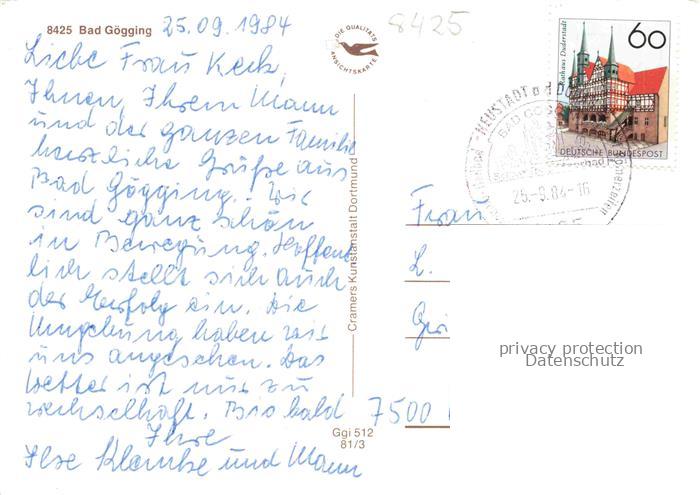 8425 Bad Gögging 25.09.1984
8425
DIE QUALITÄTS ANSICHTSKARTE
Liebe Frau Keck,
Ihnen, Ihrem Mann
und der ganzen Familie
herzliche Grüße aus
Bad Gögging. Wir
sind ganz schön
in Bewegung. Hoffent
lich stellt sich auch
der Erfolg ein. Die
Umgebung haben wir
uns angesehen. Das
Wetter ist nur zu
wechselhaft. Bis bald
Ihre
Ilse und Mann
Cramers Kunstanstalt Dortmund
Ggi 512
81/3
60
Rathaus Duderstadt
DEUTSCHE BUNDESPOST
NEUSTADT a d DO
BAD GÖ
25.-9.84-16
Frau
L.
7500
privacy protection
Datenschutz